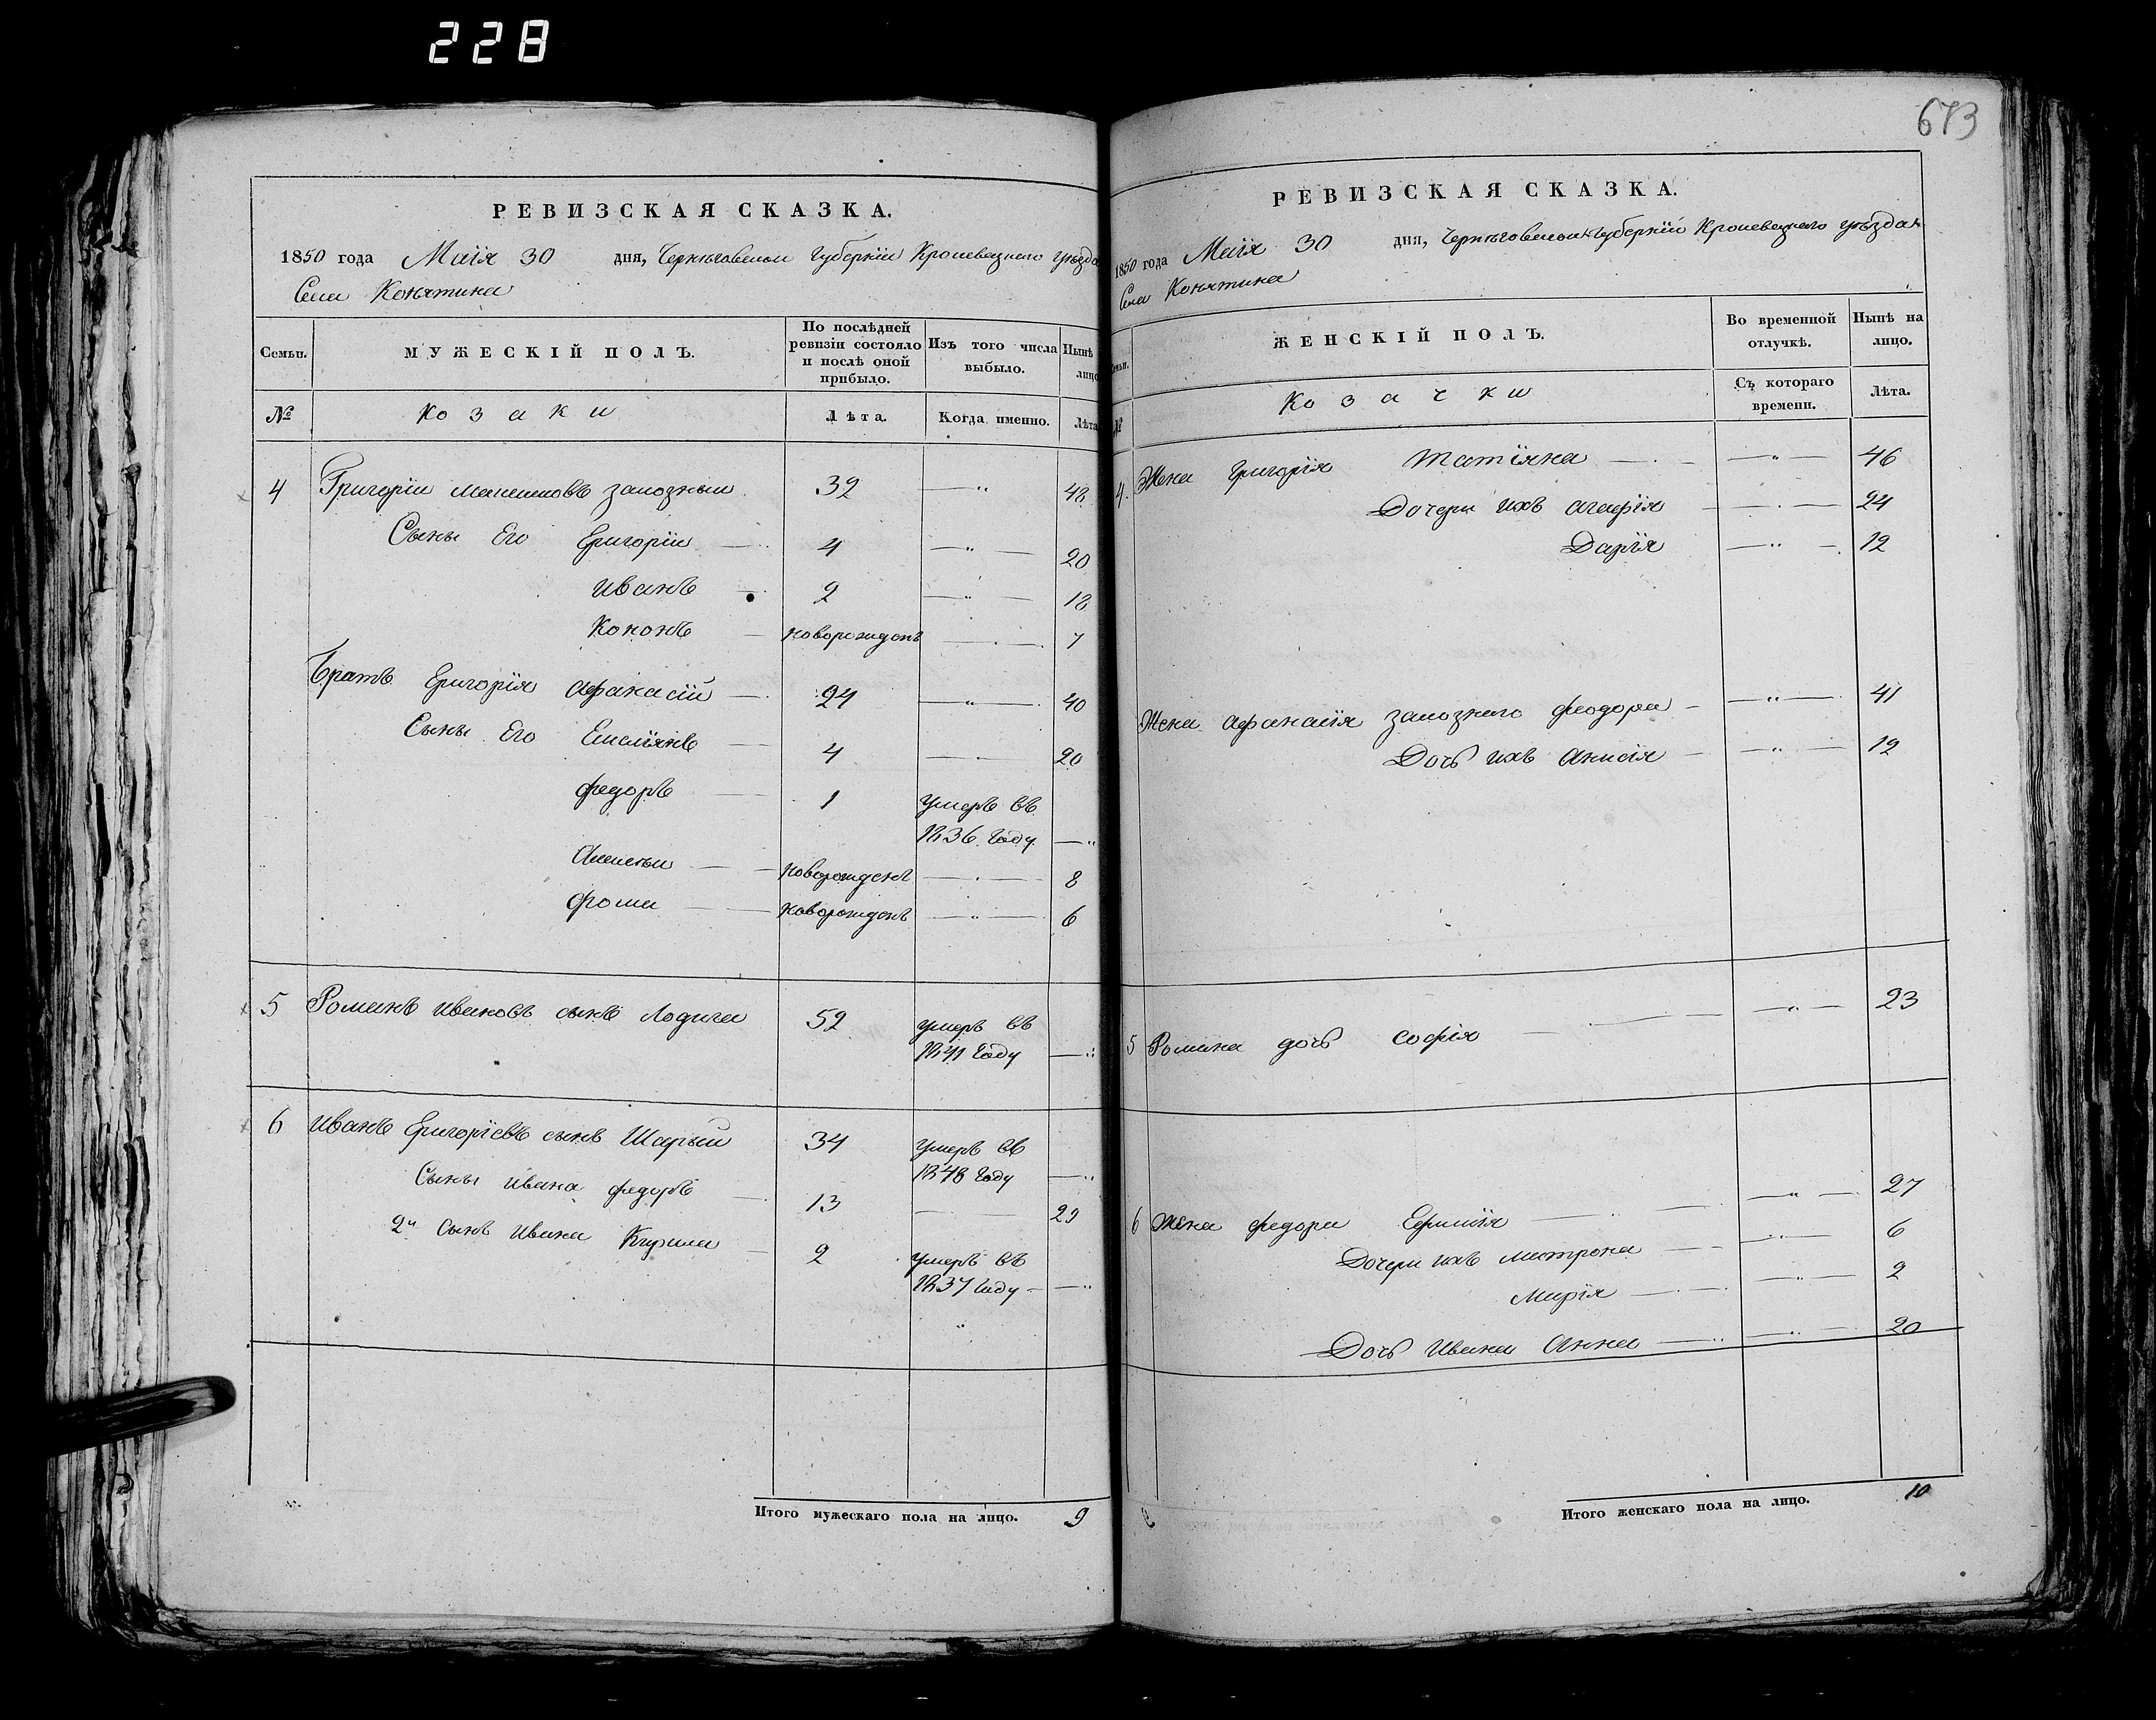 228
673
РЕВИЗСКАЯ СКАЗКА.
1850 года Маія 30 дня, Черниговской Губерніи Кролевецкого уѣзда
Села Конятина
Семьи. МУЖЕСКІЙ ПОЛЪ. По послѣдней ревизіи состояло и послѣ оной прибыло. Изъ того числа выбыло. Нынѣ лицо
№ Козаки Лѣта. Когда именно. Лѣта
4 Григорій Максимовъ Залозный 32 —„ 48
Сыны Его Григорій — 4 —„— 20
Иванъ — 2 —„— 18
Кононъ — новорожденъ — 7
Братъ Григорія Афанасій — 24 —„— 40
Сыны Его Емеліянъ — 4 —„— 20
Федоръ — 1 умеръ въ
1836 Году —„
Алексѣй — новорожденъ —„— 8
Фома — новорожденъ —„— 6
5 Романъ Ивановъ сынъ Лодыга 52 умеръ въ
1841 Году —„
6 Иванъ Григоріевъ сынъ Шарый 34 умеръ въ
1848 Году —„
Сыны Ивана Федоръ — 13 — 29
2й Сынъ Ивана Кирила — 2 умеръ въ
1837 Году — —„
Итого мужескаго пола на лицо. 9
РЕВИЗСКАЯ СКАЗКА.
1850 года Маія 30 дня, Черниговской Губерніи Кролевецкаго уѣзда
Села Конятина
Семьи. ЖЕНСКІЙ ПОЛЪ. Во временной отлучкѣ. Нынѣ на лицо.
№ Козачки Съ котораго времени. Лѣта.
4. Жена Григорія Татіяна — —„— 46
Дочери ихъ Агафія — 24
Дарія —„— 12
Жена Афанасія Залозного Феодора — —„— 41
Дочь ихъ Анисія — —„— 12
5 Романа дочь Софія — —„— 23
6 Жена Федора —„— 27
Дочери ихъ Матрона — —„— 6
Марія — —„— 2
Дочь Ивана Анна — —„— 20
Итого женскаго пола на лицо. 10